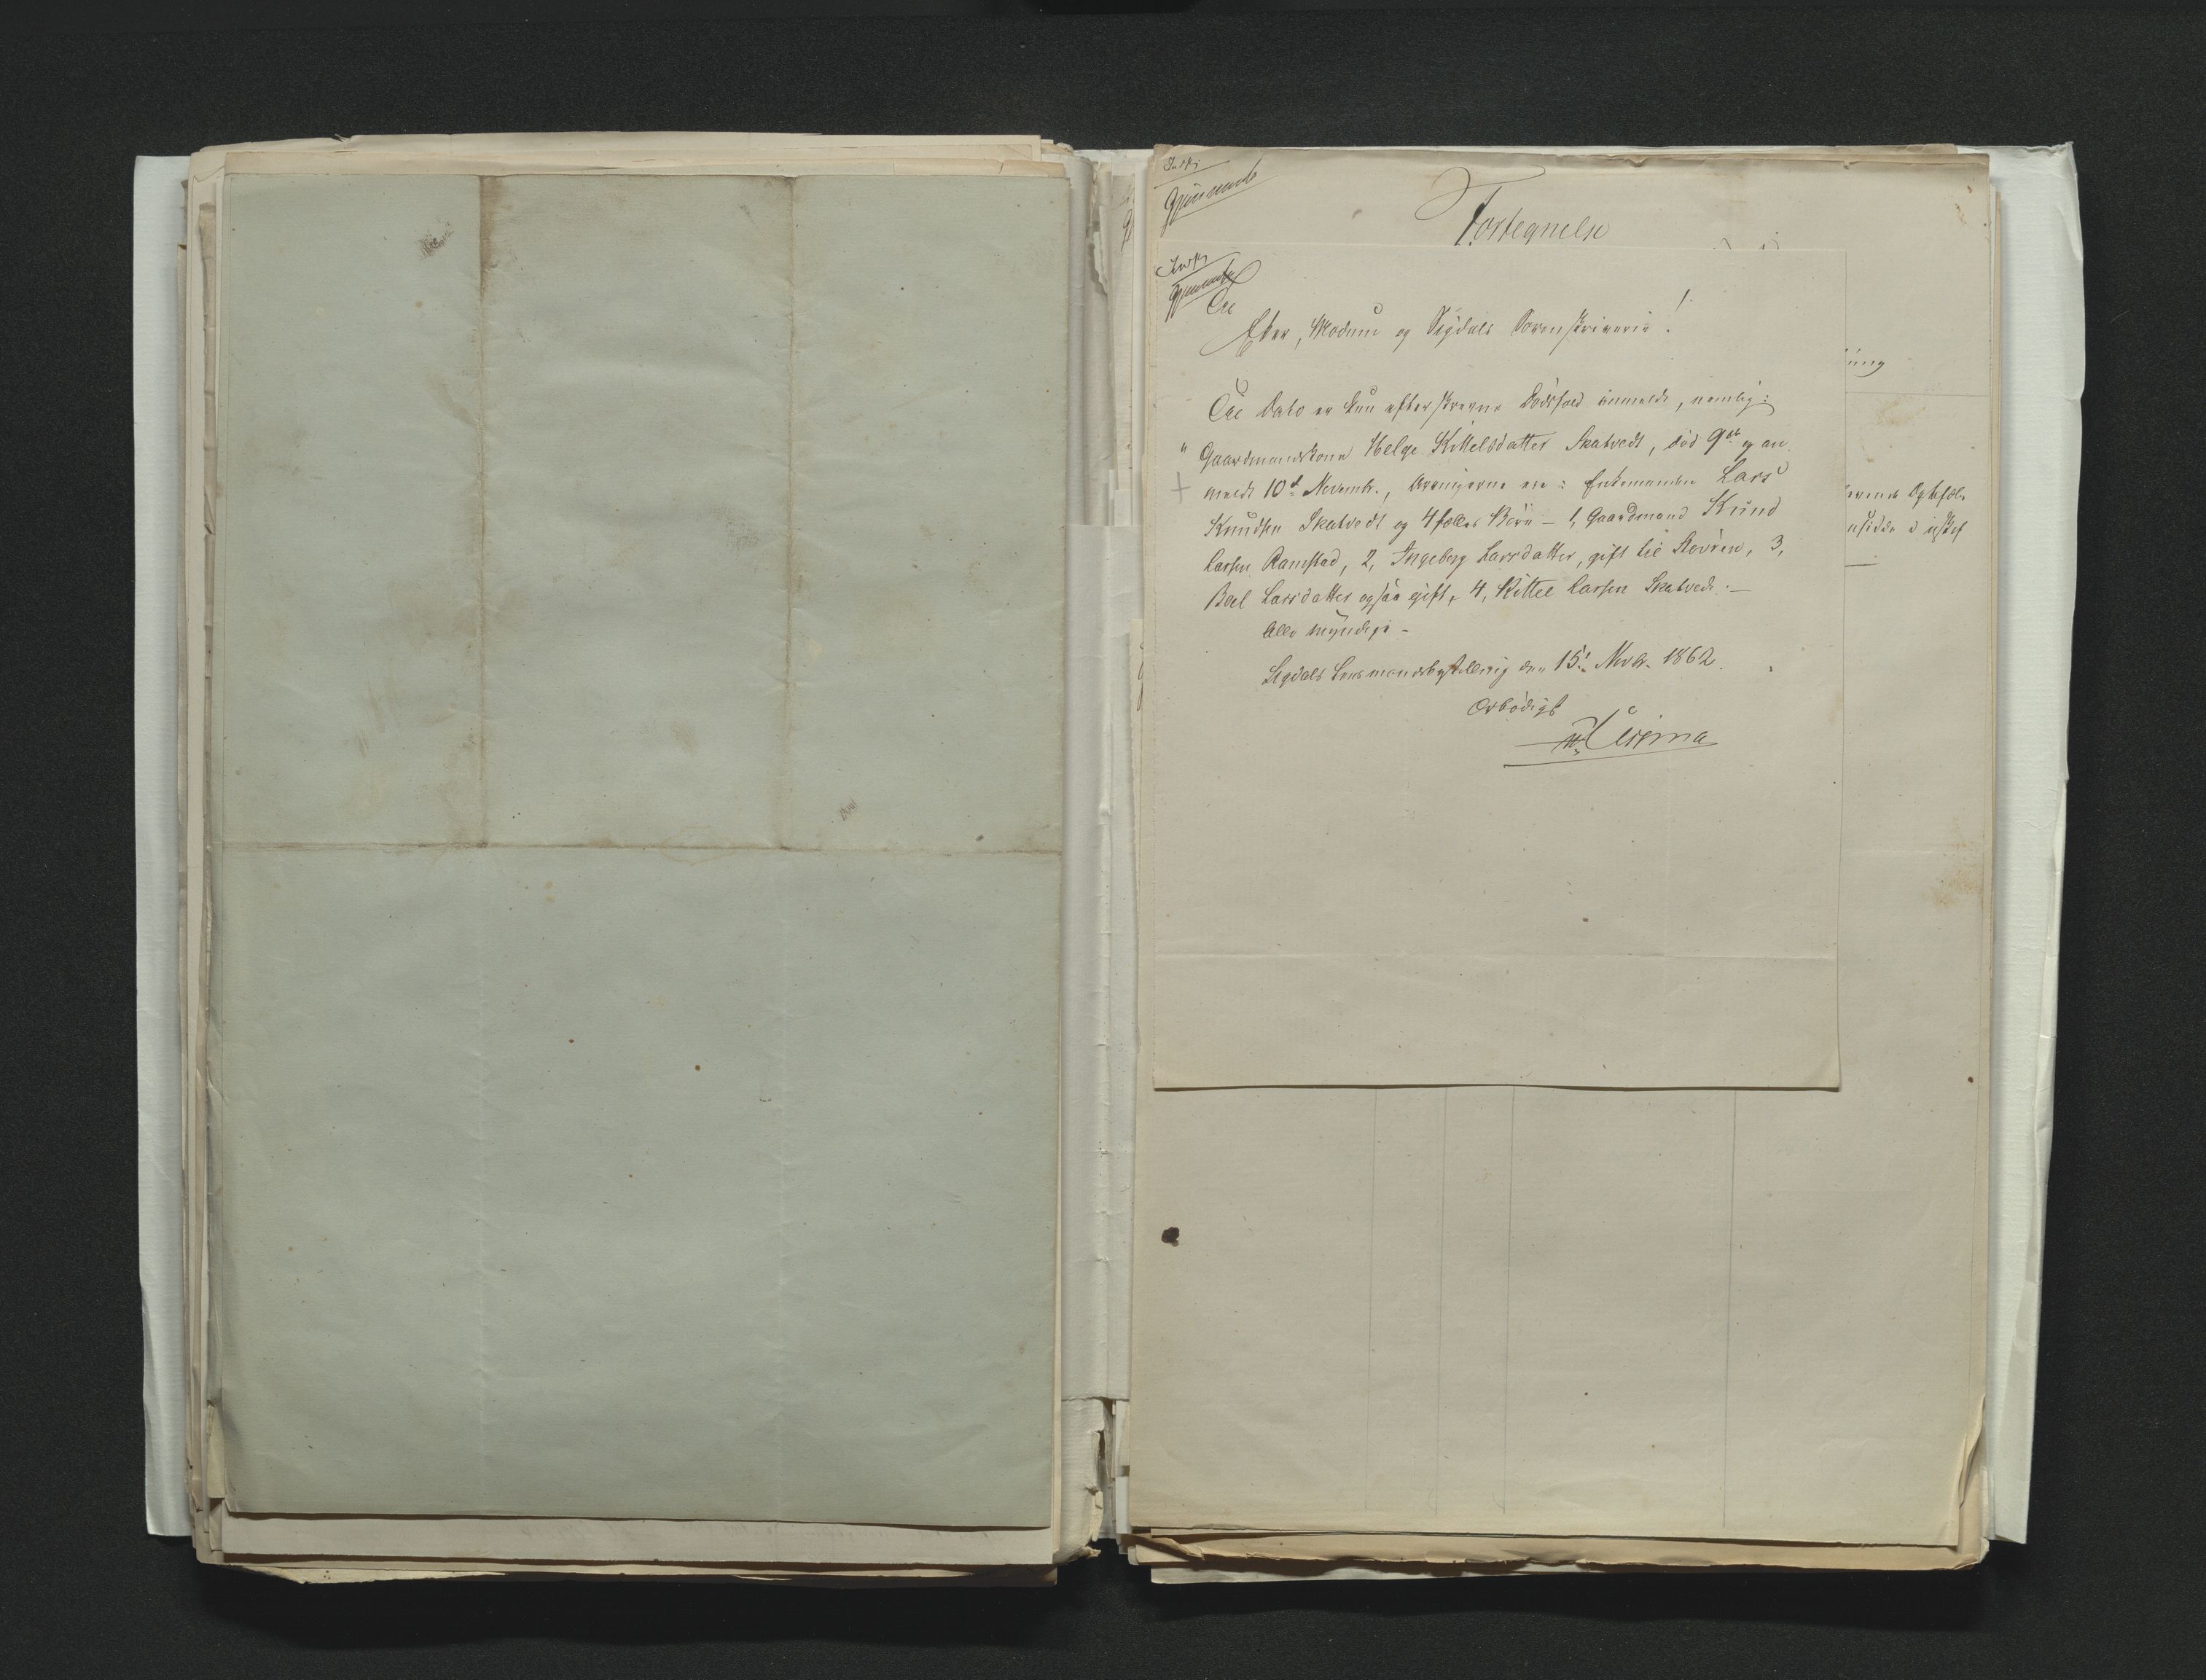 Fortegnelse
Til
Eker, Modum og Sigdals Sorenskriverie!
Til Dato er kun efterskrevne Dödsfald anmeldt, nemlig:
" Gaardmandskone Helge Kittelsdatter Skatvedt, död 9de og an
meldt 10d Novembr., Arvingerne ere: Enkemanden Lars
Knudsen Skatvedt og 4 fælles Börn – 1, Gaardmand Knud
Larsen Ramstad, 2, Ingeborg Larsdatter, gift til 3,
Boel Larsdatter ogsaa gift, 4, Kittel Larsen Skatvedt. –
Alle myndige –
Sigdals Lensmandsbestilling den 15. Novbr. 1862.
Ærbödigst